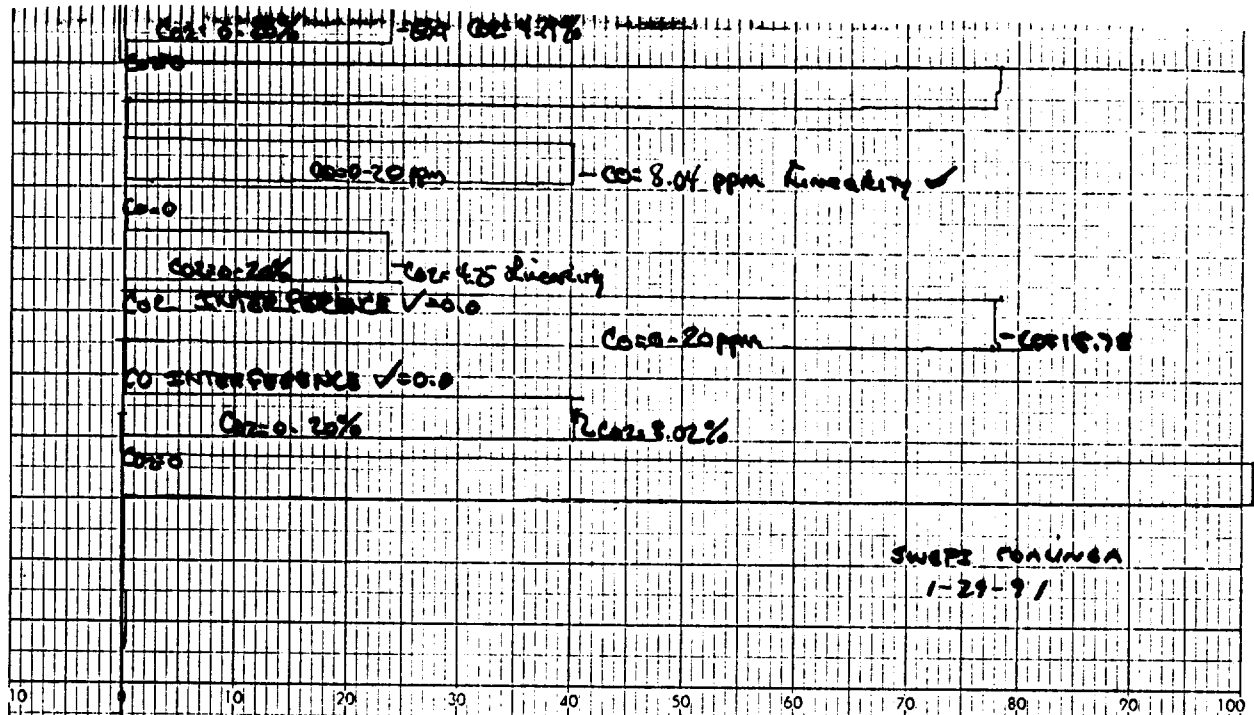 CO2= 0-20% CO2= 4.79%
CO=0-20 ppm - CO= 8.04 ppm Linearity ✓
CO=0
CO2=0-20% CO2= 4.75 Linearity
CO2 INTERFERENCE ✓=0.0
CO=0-20 ppm - CO=18.78
CO INTERFERENCE ✓=0.0
CO2=0-20% CO2=8.02%
CO2=0
SWEPI COALINGA
1-29-91
10 0 10 20 30 40 50 60 70 80 90 100